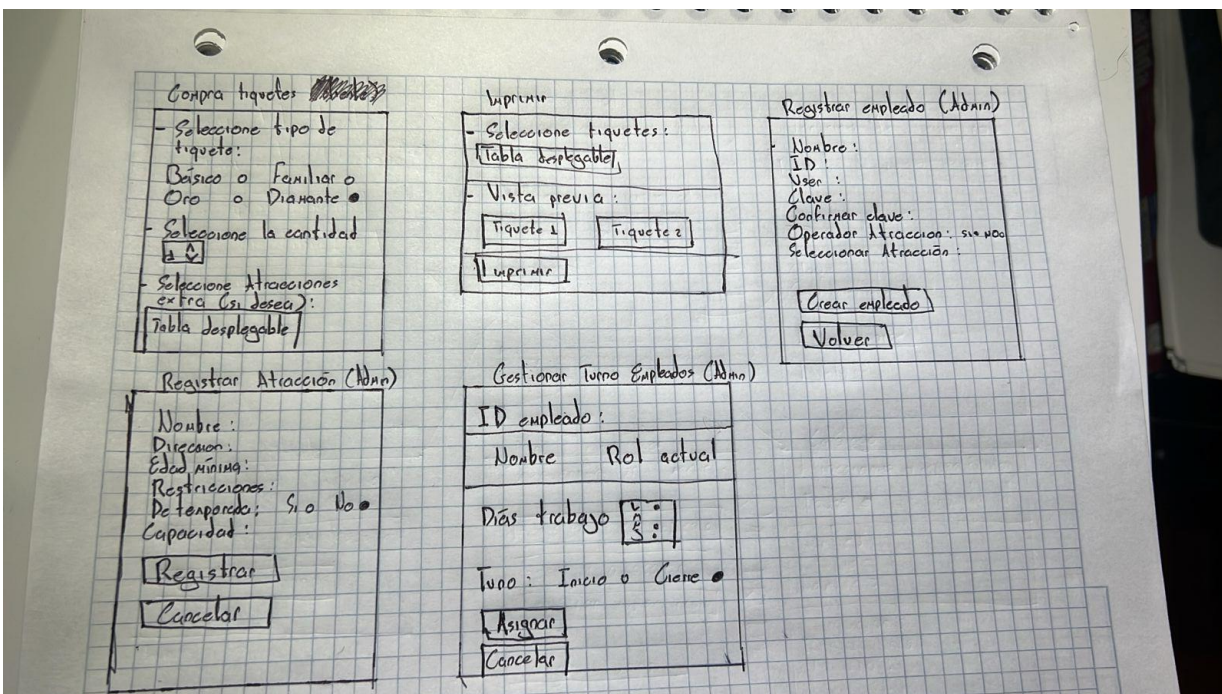 Compra tiquetes
- Seleccione tipo de
tiquete:
Básico o Familiar o
Oro o Diamante ●
- Seleccione la cantidad
1
- Seleccione Atracciones
extra (si desea):
Tabla desplegable
Imprimir
- Seleccione tiquetes:
Tabla desplegable
- Vista previa:
Tiquete 1 Tiquete 2
Imprimir
Registrar empleado (Admin)
- Nombre:
ID:
User:
Clave:
Confirmar clave:
Operador Atraccion: si o NO o
Seleccionar Atracción:
Crear empleado
Volver
Registrar Atracción (Admin)
Nombre:
Direccion:
Edad mínima:
Restricciones:
De temporada: Si o No ●
Capacidad:
Registrar
Cancelar
Gestionar Turno Empleados (Admin)
ID empleado:
Nombre Rol actual
Días trabajo
Tuno: Inicio o Cierre ●
Asignar
Cancelar